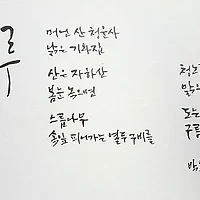 루
머언 산 청운사
낡은 기와집
산은 자하산
봄눈 녹으면
느릅나무
속잎 피어가는 열두 구비를
청노
맑은
도는
구름
박